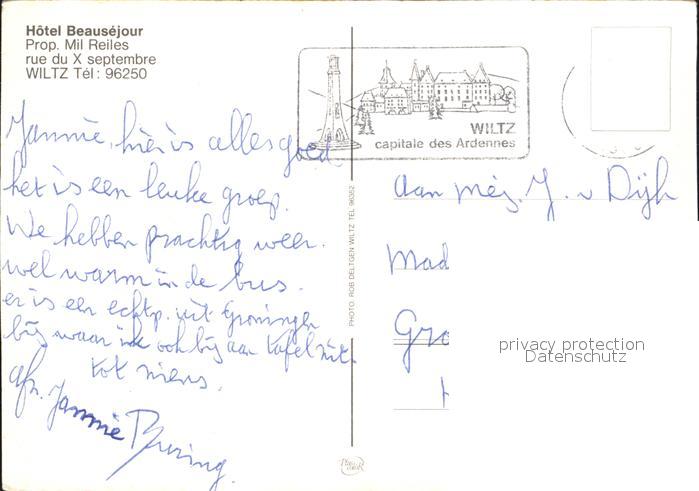 Hôtel Beauséjour
Prop. Mil Reiles
rue du X septembre
WILTZ Tél: 96250
WILTZ
capitale des Ardennes
Jannie, hier is alles goed
het is een leuke groep.
We hebben prachtig weer.
wel warm in de bus.
er is een echtp. uit Groningen
bij waar ik ook bij aan tafel zit.
tot ziens.
Jannie
PHOTO: ROB DELTGEN WILTZ TEL 96362
Aan mej. J. v Dijk
Mad
Gro
privacy protection
Datenschutz